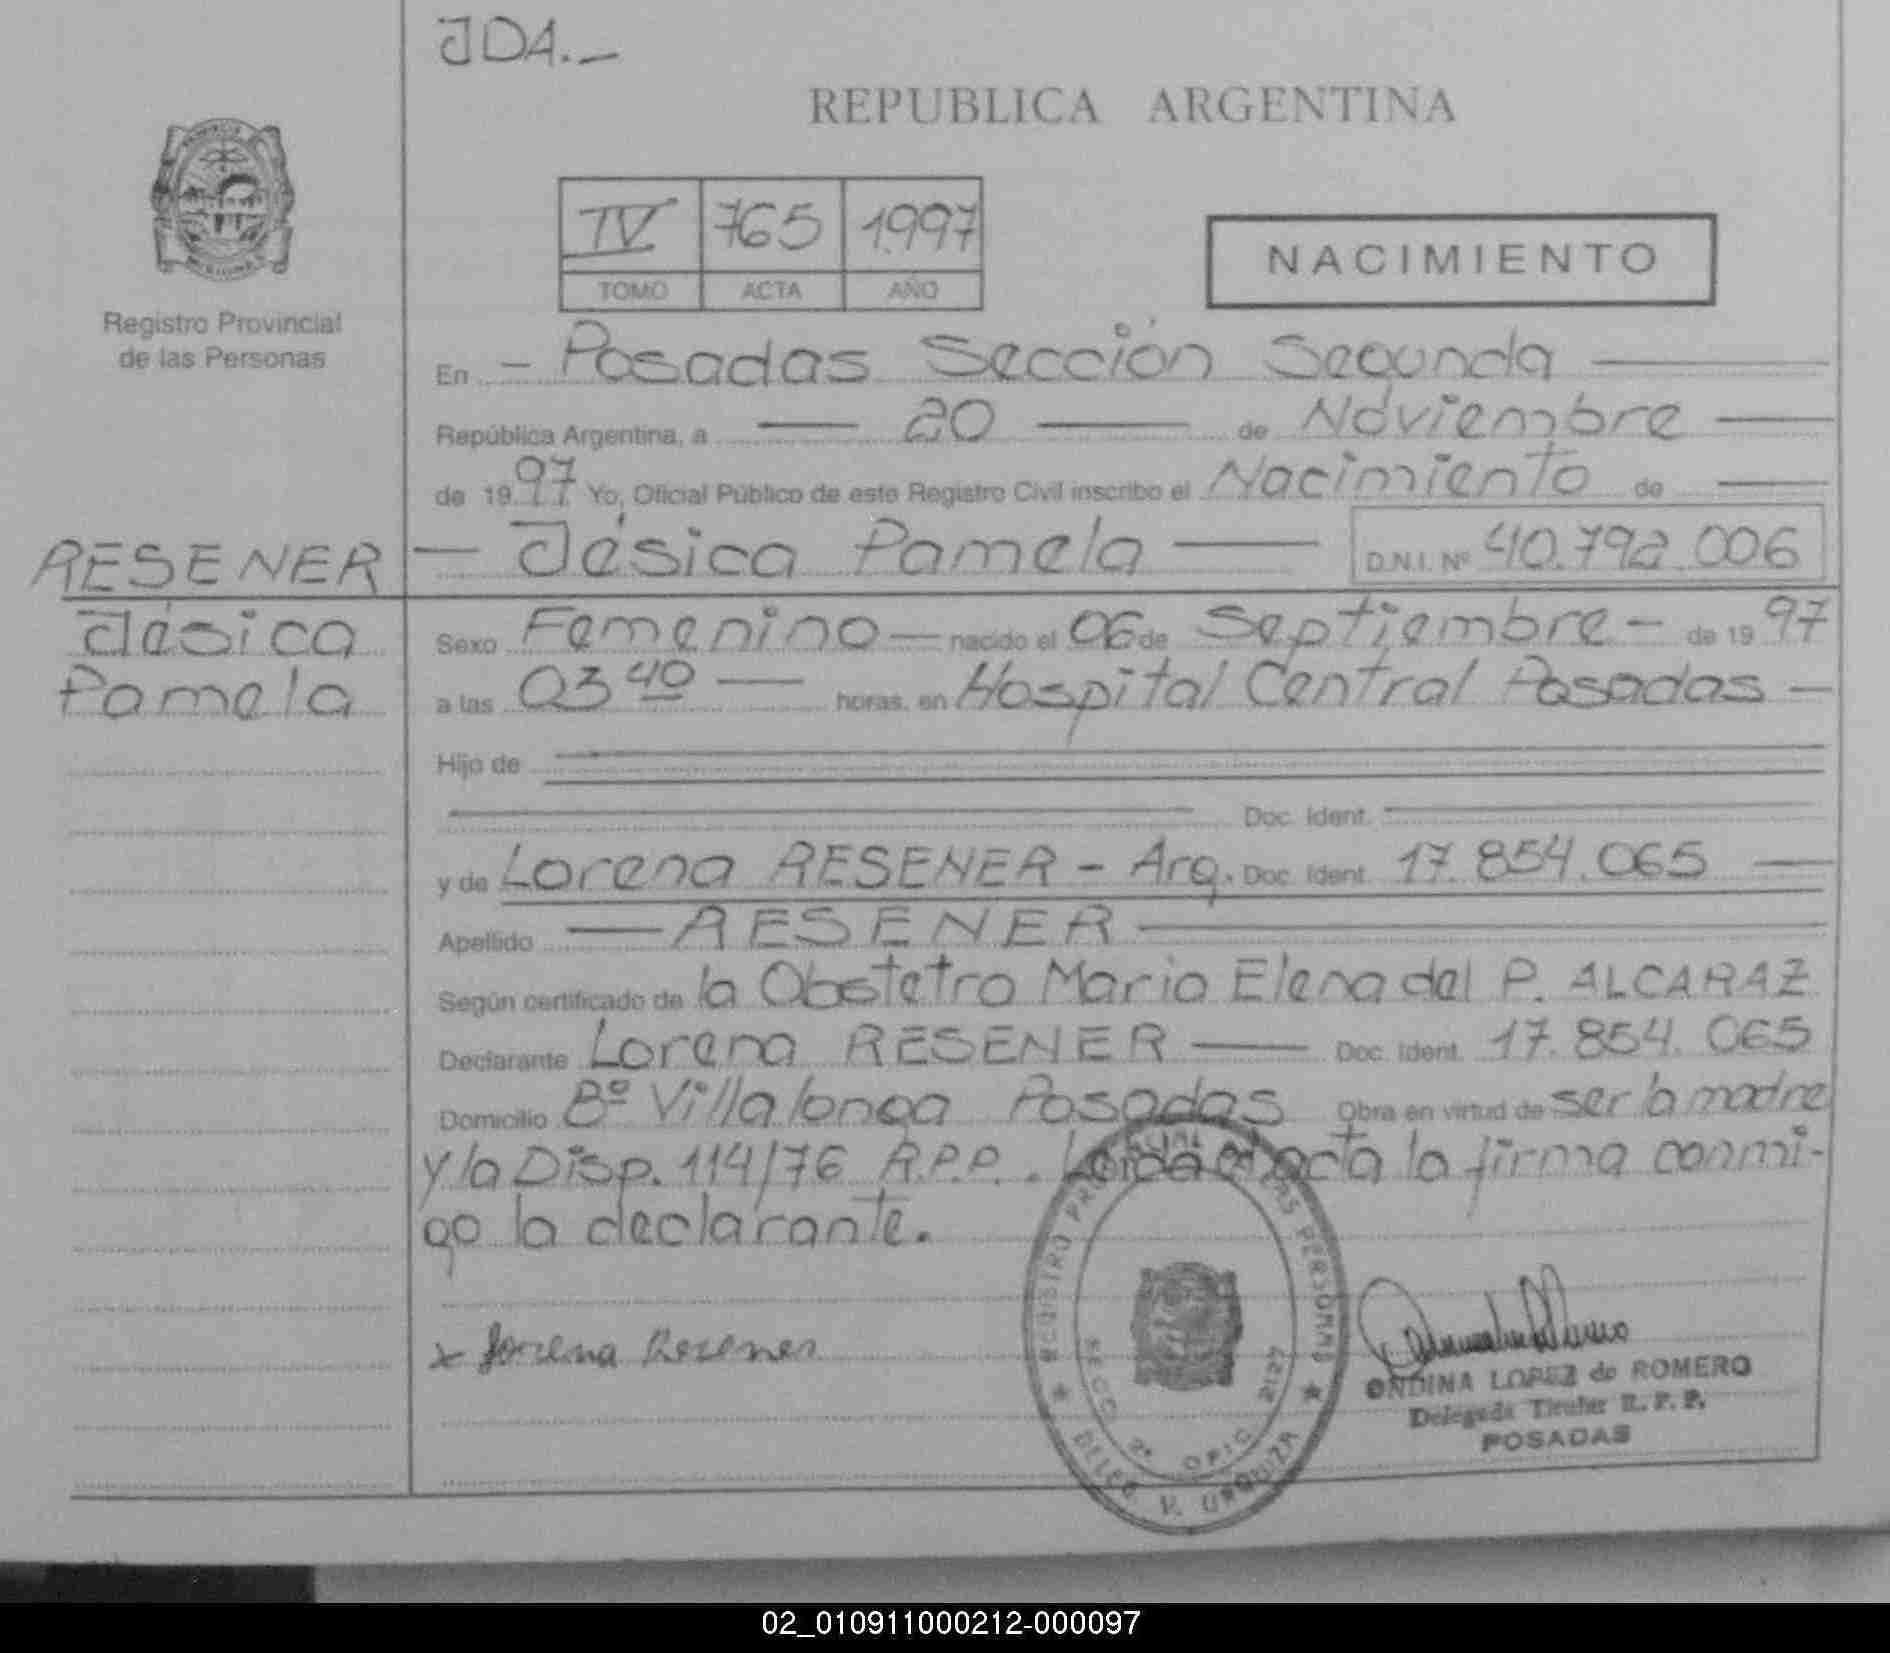 JDA.-
REPUBLICA ARGENTINA
IV 765 1997
TOMO ACTA AÑO
NACIMIENTO
Registro Provincial
de las Personas
En - Posadas Sección Segunda
República Argentina, a 20 de Noviembre
de 1997 Yo, Oficial Público de este Registro Civil inscribo el Nacimiento de
RESENER
Jésica Pamela D.N.I. Nº 40.792.006
Jésica
Pamela
Sexo Femenino nacido el 06 de Septiembre - de 1997
a las 03 40 horas. en Hospital Central Posadas -
Hijo de
Doc. Ident.
y de Lorena RESENER - Arg. Doc. Ident. 17.854.065
Apellido RESENER
Según certificado de la Obstetra Maria Elena del P. ALCARAZ
Declarante Lorena RESENER Doc. Ident. 17.854.065
Domicilio Bº Villalonga Posadas Obra en virtud de ser la madre
y la Disp. 114/76 R.P.P.. Leida el acta la firma conmi-
go la declarante.
x Lorena Resener
REGISTRO PROVINCIAL DE LAS PERSONAS
SECC. 2ª OFIC. 2127
DELEG. V. URQUIZA
ONDINA LOPEZ de ROMERO
Delegada Titular R. P. P.
POSADAS
02_010911000212-000097